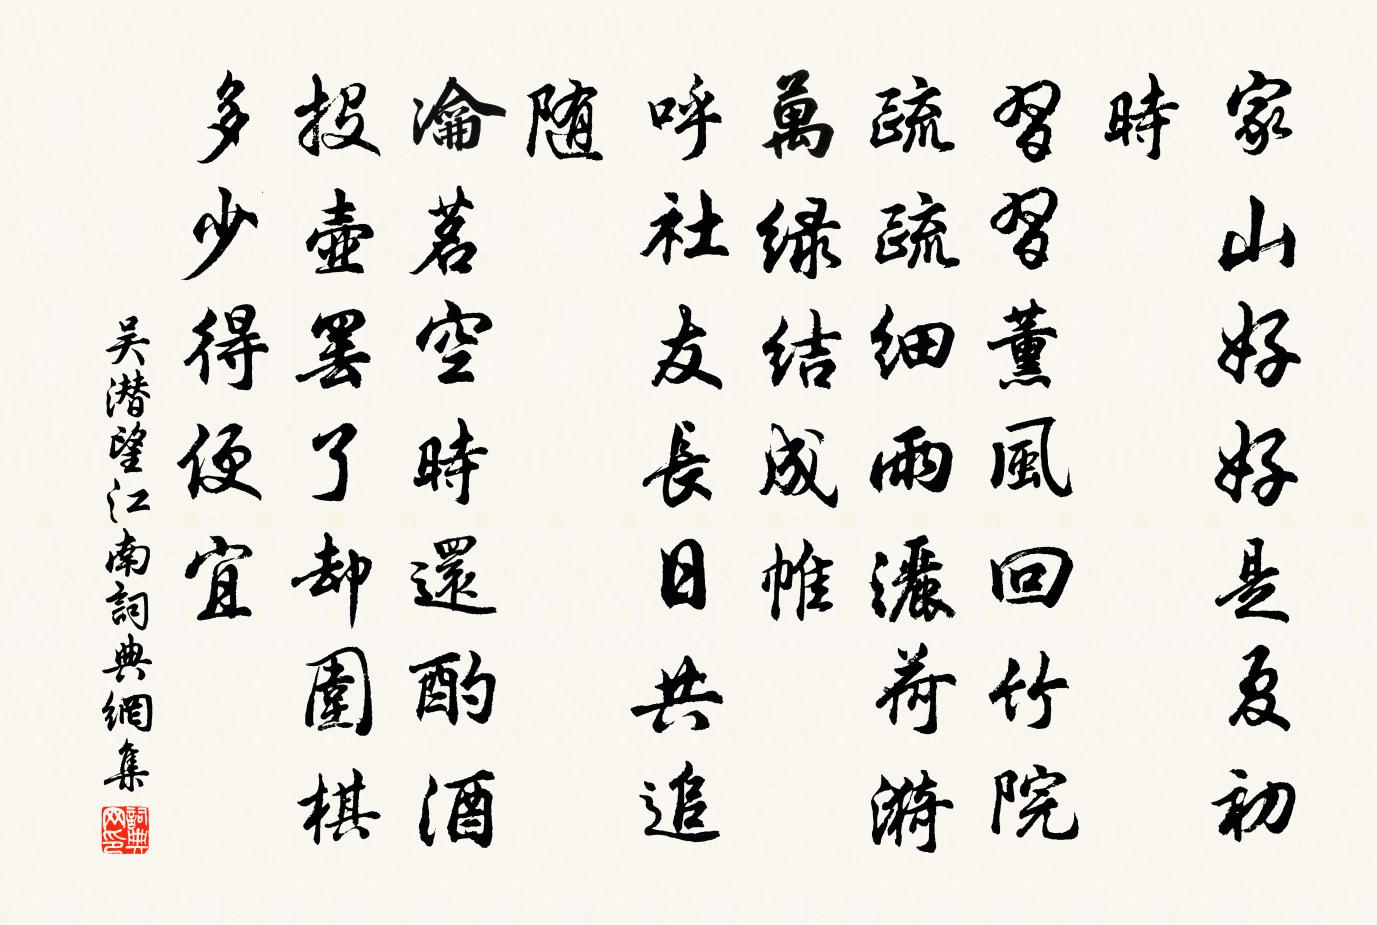 家山好好是夏初
時
習習薰風回竹院
疏疏細雨灑荷漪
萬绿結成帷
呼社友長日共追
随
瀹茗空時還酌酒
投壺罢了却圍棋
多少得便宜
吴潜望江南詞典網集
詞典
网印